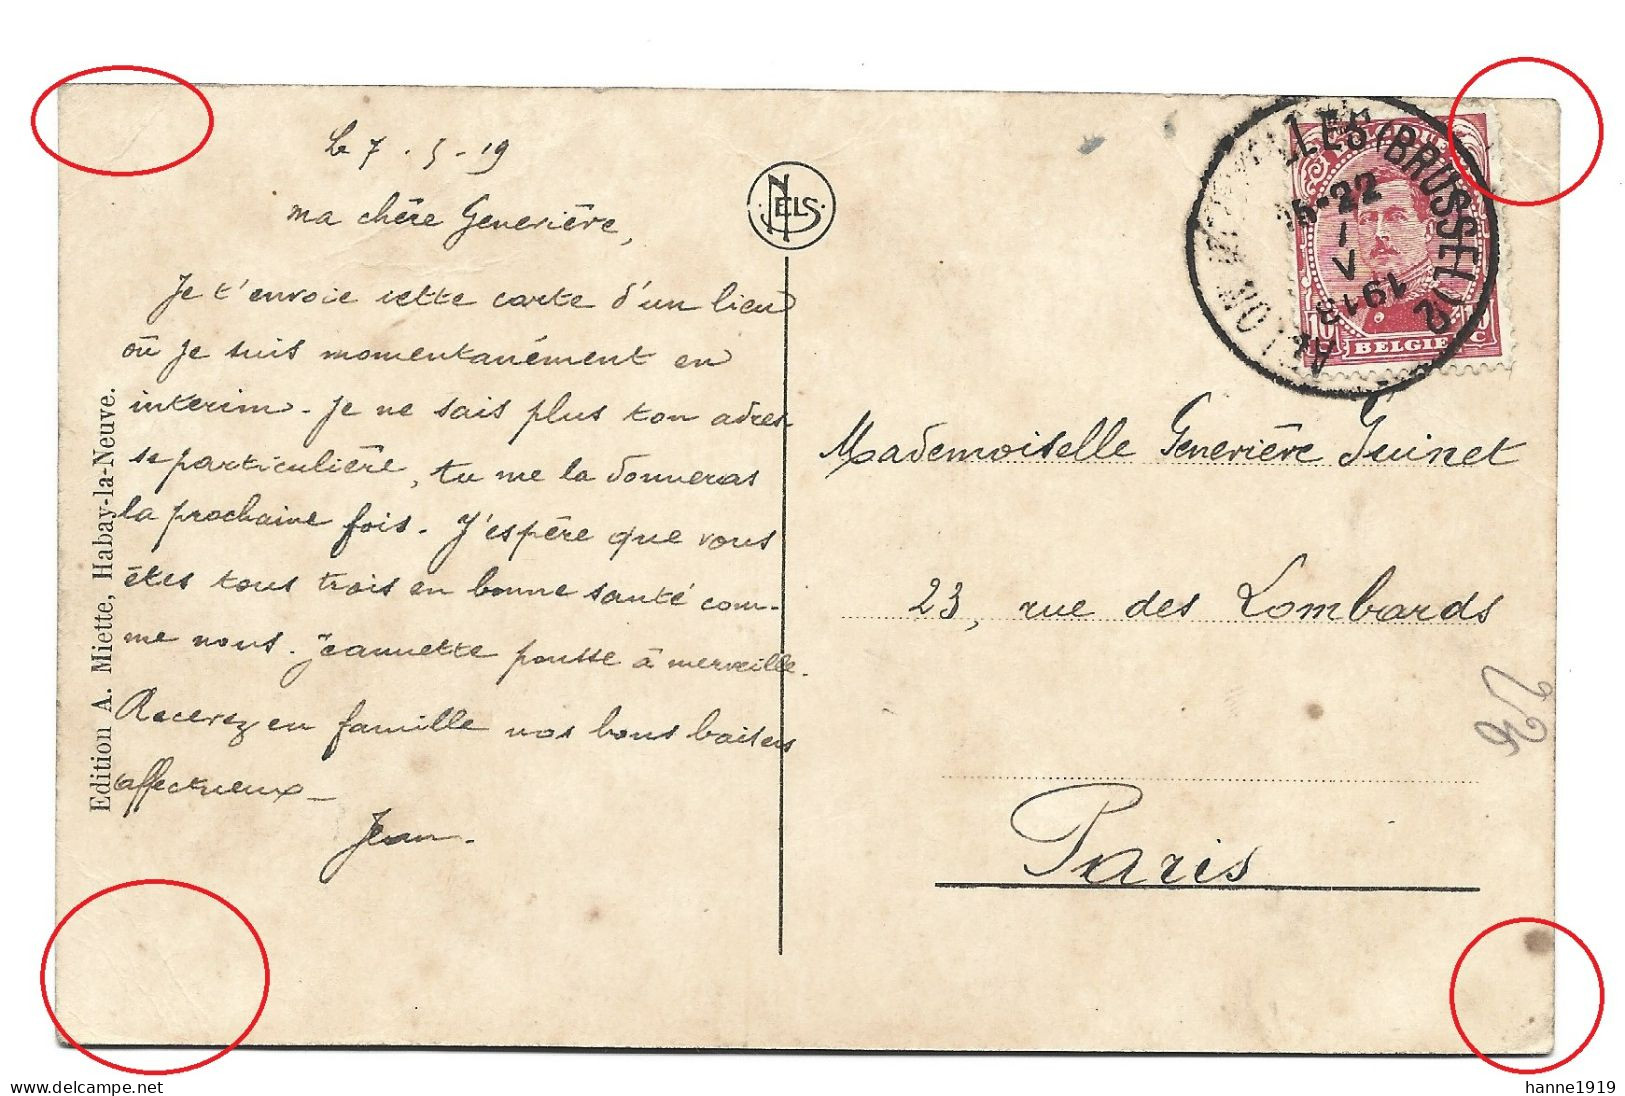 Le 7 . 5 - 19
ma chère Geneviève,
Je t'envoie cette carte d'un lieu
où je suis momentanément en
interim. Je ne sais plus ton adres-
se particulière, tu me la donneras
la prochaine fois. J'espère que vous
êtes tous trois en bonne santé com-
me nous. Jeannette pousse à merveille.
Recevez en famille nos bons baisers
affectueux _
Jean.
Edition A. Miette, Habay-la-Neuve.
NELS
(BRUSSEL) 2
-22
V
BELGIE
Mademoiselle Geneviève Guinet
23, rue des Lombards
Paris
www.delcampe.net
hanne1919